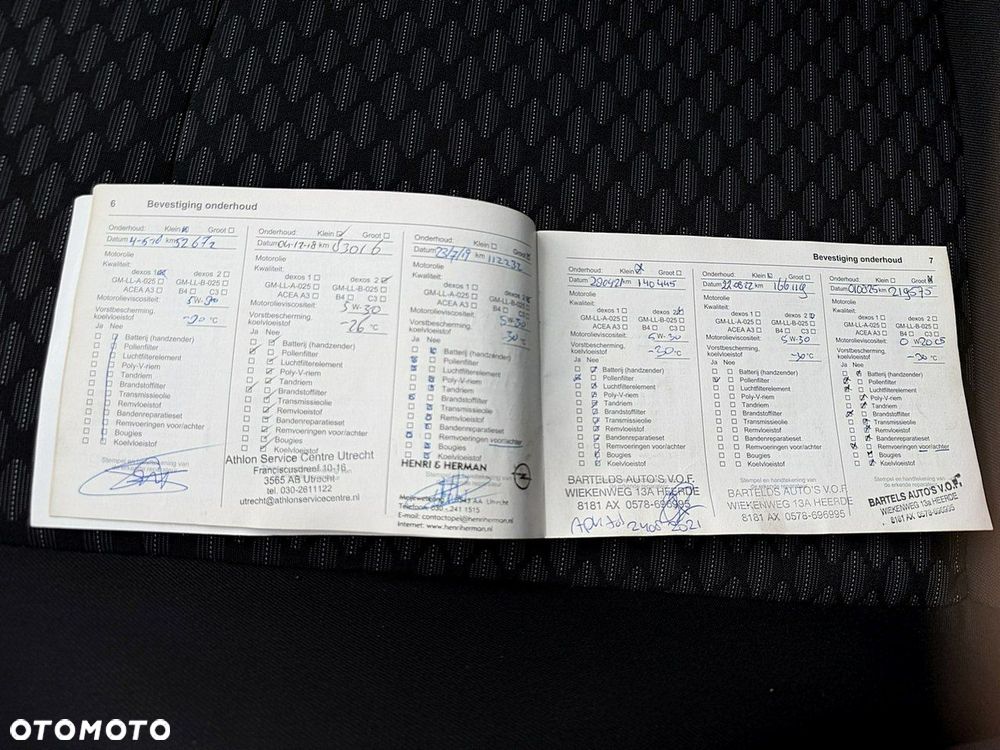 6 Bevestiging onderhoud
Onderhoud: Klein Groot
Datum 4-5-18 km 52672
Motorolie
Kwaliteit:
dexos 1 dexos 2
GM-LL-A-025 GM-LL-B-025
ACEA A3 B4 C3
Motorolieviscositeit: 5W-30
Vorstbescherming, koelvloeistof °C
Ja Nee
Batterij (handzender)
Pollenfilter
Luchtfilterelement
Poly-V-riem
Tandriem
Brandstoffilter
Transmissieolie
Remvloeistof
Bandenreparatieset
Remvoeringen voor/achter
Bougies
Koelvloeistof
Onderhoud: Klein Groot
Datum 06-12-18 km 83016
Motorolie
Kwaliteit:
dexos 1 dexos 2
GM-LL-A-025 GM-LL-B-025
ACEA A3 B4 C3
Motorolieviscositeit: 5W-30
Vorstbescherming, koelvloeistof -26 °C
Ja Nee
Batterij (handzender)
Pollenfilter
Luchtfilterelement
Poly-V-riem
Tandriem
Brandstoffilter
Transmissieolie
Remvloeistof
Bandenreparatieset
Remvoeringen voor/achter
Bougies
Koelvloeistof
Athlon Service Centre Utrecht
Franciscusdreef 10-16
3565 AB Utrecht
tel. 030-2611122
utrecht@athlonservicecentre.nl
Onderhoud: Klein Groot
Datum 23/7/19 km 112232
Motorolie
Kwaliteit:
dexos 1 dexos 2
GM-LL-A-025 GM-LL-B-025
ACEA A3 B4 C3
Motorolieviscositeit: 5W-30
Vorstbescherming, koelvloeistof -30 °C
Ja Nee
Batterij (handzender)
Pollenfilter
Luchtfilterelement
Poly-V-riem
Tandriem
Brandstoffilter
Transmissieolie
Remvloeistof
Bandenreparatieset
Remvoeringen voor/achter
Bougies
Koelvloeistof
HENRI & HERMAN
AA Utrecht
Telefoon: 030 - 241 1515
E-mail: contactopel@henriherman.nl
Internet: www.henriherman.nl
Bevestiging onderhoud 7
Onderhoud: Klein Groot
Datum 200421 km 140445
Motorolie
Kwaliteit:
dexos 1 dexos 2
GM-LL-A-025 GM-LL-B-025
ACEA A3 B4 C3
Motorolieviscositeit: 5W-30
Vorstbescherming, koelvloeistof -30 °C
Ja Nee
Batterij (handzender)
Pollenfilter
Luchtfilterelement
Poly-V-riem
Tandriem
Brandstoffilter
Transmissieolie
Remvloeistof
Bandenreparatieset
Remvoeringen voor/achter
Bougies
Koelvloeistof
BARTELS AUTO'S V.O.F.
WIEKENWEG 13A HEERDE
8181 AX 0578-696995
2021
Onderhoud: Klein Groot
Datum 220822 km 166119
Motorolie
Kwaliteit:
dexos 1 dexos 2
GM-LL-A-025 GM-LL-B-025
ACEA A3 B4 C3
Motorolieviscositeit: 5W-30
Vorstbescherming, koelvloeistof -30 °C
Ja Nee
Batterij (handzender)
Pollenfilter
Luchtfilterelement
Poly-V-riem
Tandriem
Brandstoffilter
Transmissieolie
Remvloeistof
Bandenreparatieset
Remvoeringen voor/achter
Bougies
Koelvloeistof
BARTELS AUTO'S V.O.F.
WIEKENWEG 13A HEERDE
8181 AX 0578-696995
Onderhoud: Klein Groot
Datum km 219575
Motorolie
Kwaliteit:
dexos 1 dexos 2
GM-LL-A-025 GM-LL-B-025
ACEA A3 B4 C3
Motorolieviscositeit: 0W20 C5
Vorstbescherming, koelvloeistof °C
Ja Nee
Batterij (handzender)
Pollenfilter
Luchtfilterelement
Poly-V-riem
Tandriem
Brandstoffilter
Transmissieolie
Remvloeistof
Bandenreparatieset
Remvoeringen voor/achter
Bougies
Koelvloeistof
Stempel en handtekening van de erkende reparateur
BARTELS AUTO'S V.O.F.
WIEKENWEG 13a HEERDE
8181 AX 0578-696995
OTOMOTO